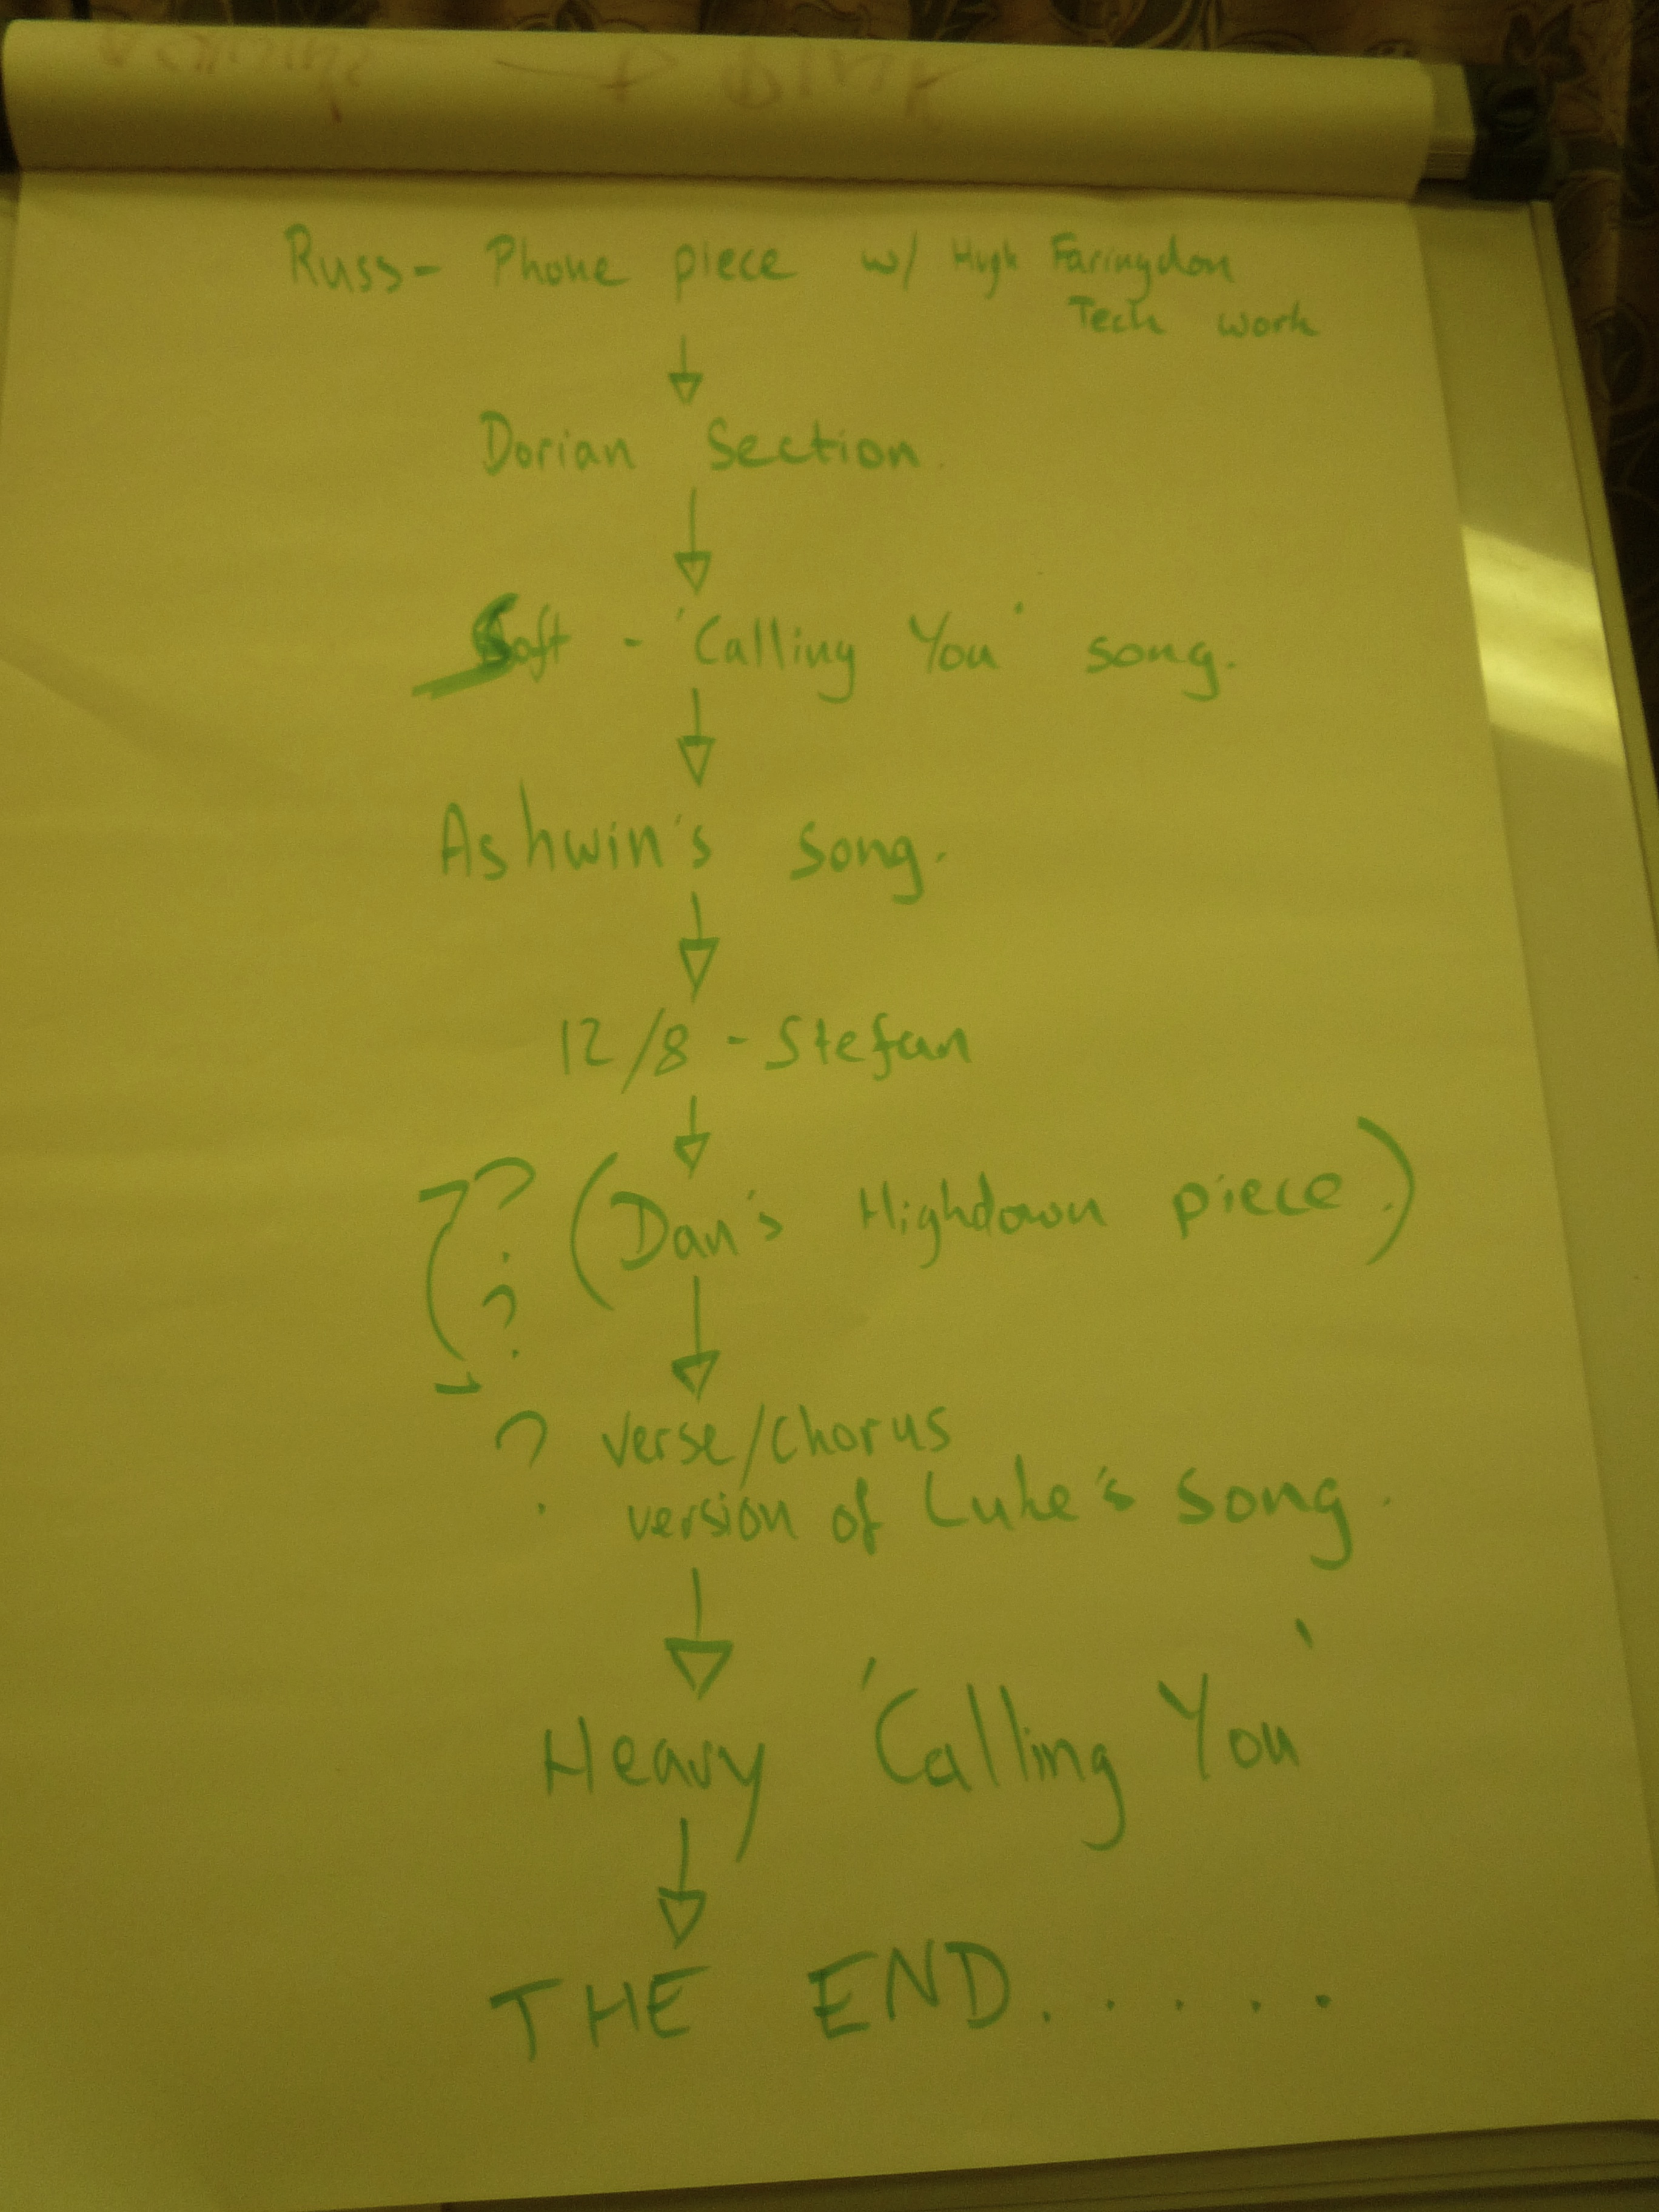 Russ - Phone piece w/ Hugh Faringdon
Tech work
Dorian Section.
Soft - 'Calling You' song.
Ashwin's song.
12/8 - Stefan
?? (Dan's Highdown piece.)
? verse/chorus
version of Luke's song.
Heavy 'Calling You'
THE END.....